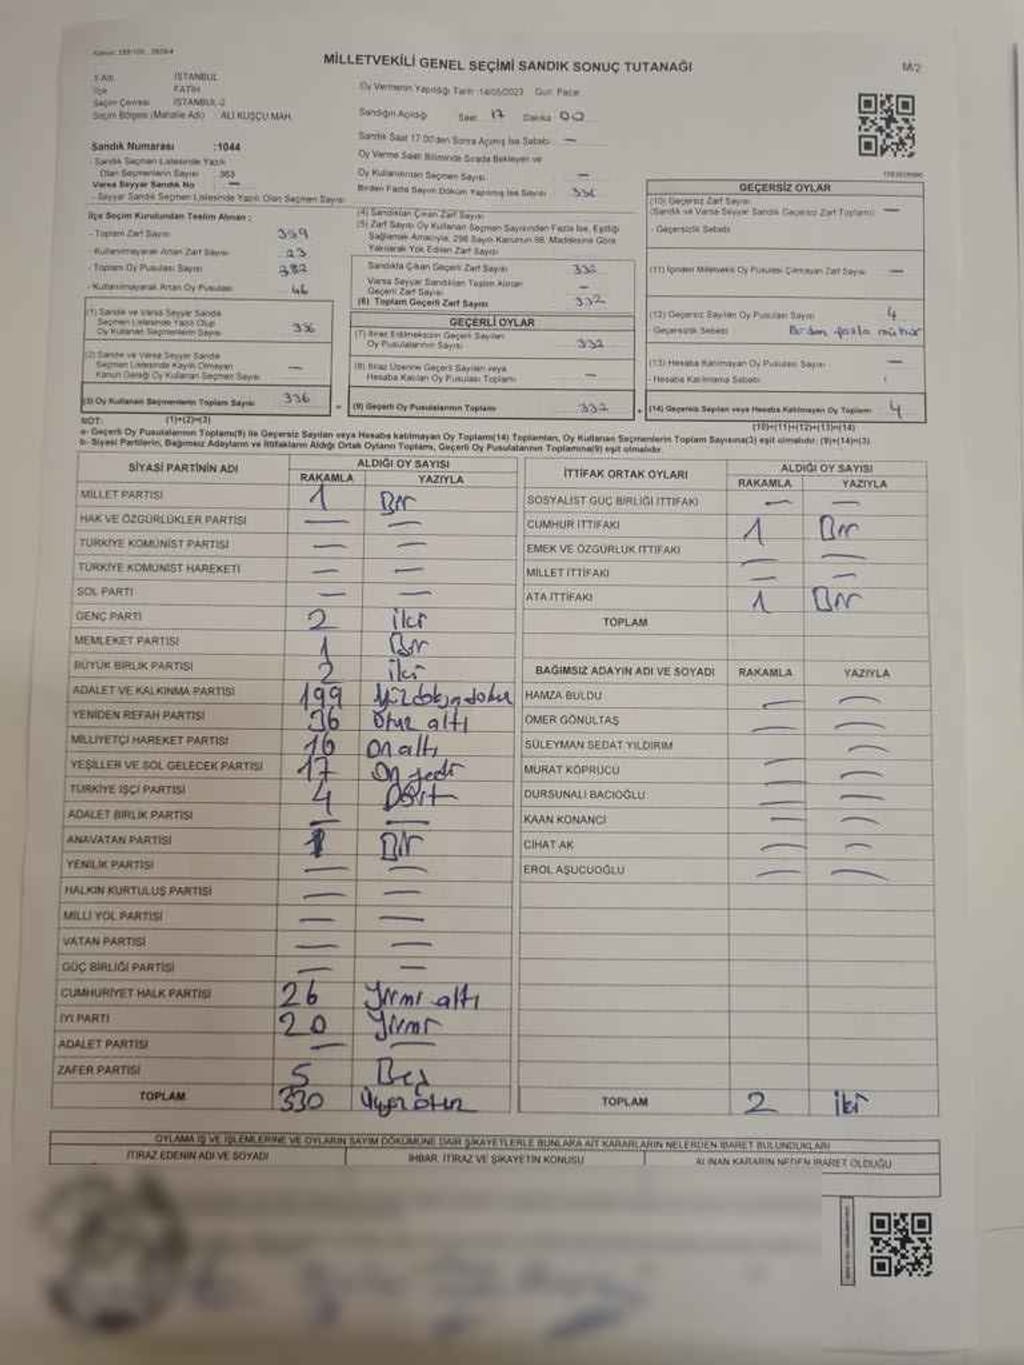 MİLLETVEKİLİ GENEL SEÇİMİ SANDIK SONUÇ TUTANAĞI
M/2
İli Adı: İSTANBUL
İlçe FATİH
Seçim Çevresi İSTANBUL-2
Seçim Bölgesi (Mahalle Adı) ALİ KUŞÇU MAH.
Oy Vermenin Yapıldığı Tarih :14/05/2023 Gün: Pazar
Sandığın Açıldığı Saat 17 Dakika 00
Sandık Saat 17.00'den Sonra Açılmış İse Sebebi —
Oy Verme Saati Bitiminde Sırada Bekleyen ve
Oy Kullanılmayan Seçmen Sayısı —
Birden Fazla Sayım Döküm Yapılmış İse Sayısı
Sandık Numarası :1044
- Sandık Seçmen Listesinde Yazılı
Olan Seçmenlerin Sayısı : 363
Varsa Seyyar Sandık No —
- Seyyar Sandık Seçmen Listesinde Yazılı Olan Seçmen Sayısı
İlçe Seçim Kurulundan Teslim Alınan :
- Toplam Zarf Sayısı 359
- Kullanılmayarak Artan Zarf Sayısı 23
- Toplam Oy Pusulası Sayısı 382
- Kullanılmayarak Artan Oy Pusulası 46
(1) Sandık ve Varsa Seyyar Sandık
Seçmen Listesinde Yazılı Olup
Oy Kullanan Seçmenlerin Sayısı 336
(2) Sandık ve Varsa Seyyar Sandık
Seçmen Listesinde Kaydı Olmayan
Kanun Gereği Oy Kullanan Seçmen Sayısı —
(3) Oy Kullanan Seçmenlerin Toplam Sayısı 336
(1)+(2)=(3)
(4) Sandıktan Çıkan Zarf Sayısı
(5) Zarf Sayısı Oy Kullanan Seçmen Sayısından Fazla İse, Eşitliği
Sağlamak Amacıyla, 298 Sayılı Kanunun 98. Maddesine Göre
Yakılarak Yok Edilen Zarf Sayısı
Sandıkta Çıkan Geçerli Zarf Sayısı 332
Varsa Seyyar Sandıktan Teslim Alınan
Geçerli Zarf Sayısı —
(6) Toplam Geçerli Zarf Sayısı 332
GEÇERLİ OYLAR
(7) İtiraz Edilmeksizin Geçerli Sayılan
Oy Pusulalarının Sayısı 332
(8) İtiraz Üzerine Geçerli Sayılan veya
Hesaba Katılan Oy Pusulası Toplamı —
= (9) Geçerli Oy Pusulalarının Toplamı 332
GEÇERSİZ OYLAR
(10) Geçersiz Zarf Sayısı
(Sandık ve Varsa Seyyar Sandık Geçersiz Zarf Toplamı) —
- Geçersizlik Sebebi
(11) İçinden Milletvekili Oy Pusulası Çıkmayan Zarf Sayısı —
(12) Geçersiz Sayılan Oy Pusulası Sayısı 4
Geçersizlik Sebebi Birden fazla mühür
(13) Hesaba Katılmayan Oy Pusulası Sayısı —
- Hesaba Katılmama Sebebi
+ (14) Geçersiz Sayılan veya Hesaba Katılmayan Oy Toplamı 4
(10)+(11)+(12)+(13)=(14)
NOT:
a- Geçerli Oy Pusulalarının Toplamı(9) ile Geçersiz Sayılan veya Hesaba katılmayan Oy Toplamı(14) Toplamları, Oy Kullanan Seçmenlerin Toplam Sayısına(3) eşit olmalıdır. (9)+(14)=(3)
b- Siyasi Partilerin, Bağımsız Adayların ve İttifakların Aldığı Ortak Oyların Toplamı, Geçerli Oy Pusulalarının Toplamına(9) eşit olmalıdır.
SİYASİ PARTİNİN ADI ALDIĞI OY SAYISI
RAKAMLA YAZIYLA
MİLLET PARTİSİ 1 Bir
HAK VE ÖZGÜRLÜKLER PARTİSİ — —
TÜRKİYE KOMÜNİST PARTİSİ — —
TÜRKİYE KOMÜNİST HAREKETİ — —
SOL PARTİ — —
GENÇ PARTİ 2 iki
MEMLEKET PARTİSİ 1 Bir
BÜYÜK BİRLİK PARTİSİ 2 iki
ADALET VE KALKINMA PARTİSİ 199 Yüzdoksandokuz
YENİDEN REFAH PARTİSİ 36 Otuz altı
MİLLİYETÇİ HAREKET PARTİSİ 16 On altı
YEŞİLLER VE SOL GELECEK PARTİSİ 17 On yedi
TÜRKİYE İŞÇİ PARTİSİ 4 Dört
ADALET BİRLİK PARTİSİ — —
ANAVATAN PARTİSİ 1 Bir
YENİLİK PARTİSİ — —
HALKIN KURTULUŞ PARTİSİ — —
MİLLİ YOL PARTİSİ — —
VATAN PARTİSİ — —
GÜÇ BİRLİĞİ PARTİSİ — —
CUMHURİYET HALK PARTİSİ 26 Yirmi altı
İYİ PARTİ 20 Yirmi
ADALET PARTİSİ — —
ZAFER PARTİSİ 5 Beş
TOPLAM 330 Üçyüz otuz
İTTİFAK ORTAK OYLARI ALDIĞI OY SAYISI
RAKAMLA YAZIYLA
SOSYALİST GÜÇ BİRLİĞİ İTTİFAKI — —
CUMHUR İTTİFAKI 1 Bir
EMEK VE ÖZGÜRLÜK İTTİFAKI — —
MİLLET İTTİFAKI — —
ATA İTTİFAKI 1 Bir
TOPLAM
BAĞIMSIZ ADAYIN ADI VE SOYADI RAKAMLA YAZIYLA
HAMZA BULDU — —
ÖMER GÖNÜLTAŞ — —
SÜLEYMAN SEDAT YILDIRIM —
MURAT KÖPRÜCÜ — —
DURSUNALİ BACIOĞLU — —
KAAN KONANCI — —
CİHAT AK — —
EROL AŞUCUOĞLU — —
TOPLAM 2 iki
OYLAMA İŞ VE İŞLEMLERİNE VE OYLARIN SAYIM DÖKÜMÜNE DAİR ŞİKAYETLERLE BUNLARA AİT KARARLARIN NELERDEN İBARET BULUNDUKLARI
İTİRAZ EDENİN ADI VE SOYADI
İHBAR, İTİRAZ VE ŞİKAYETİN KONUSU
ALINAN KARARIN NEDEN İBARET OLDUĞU